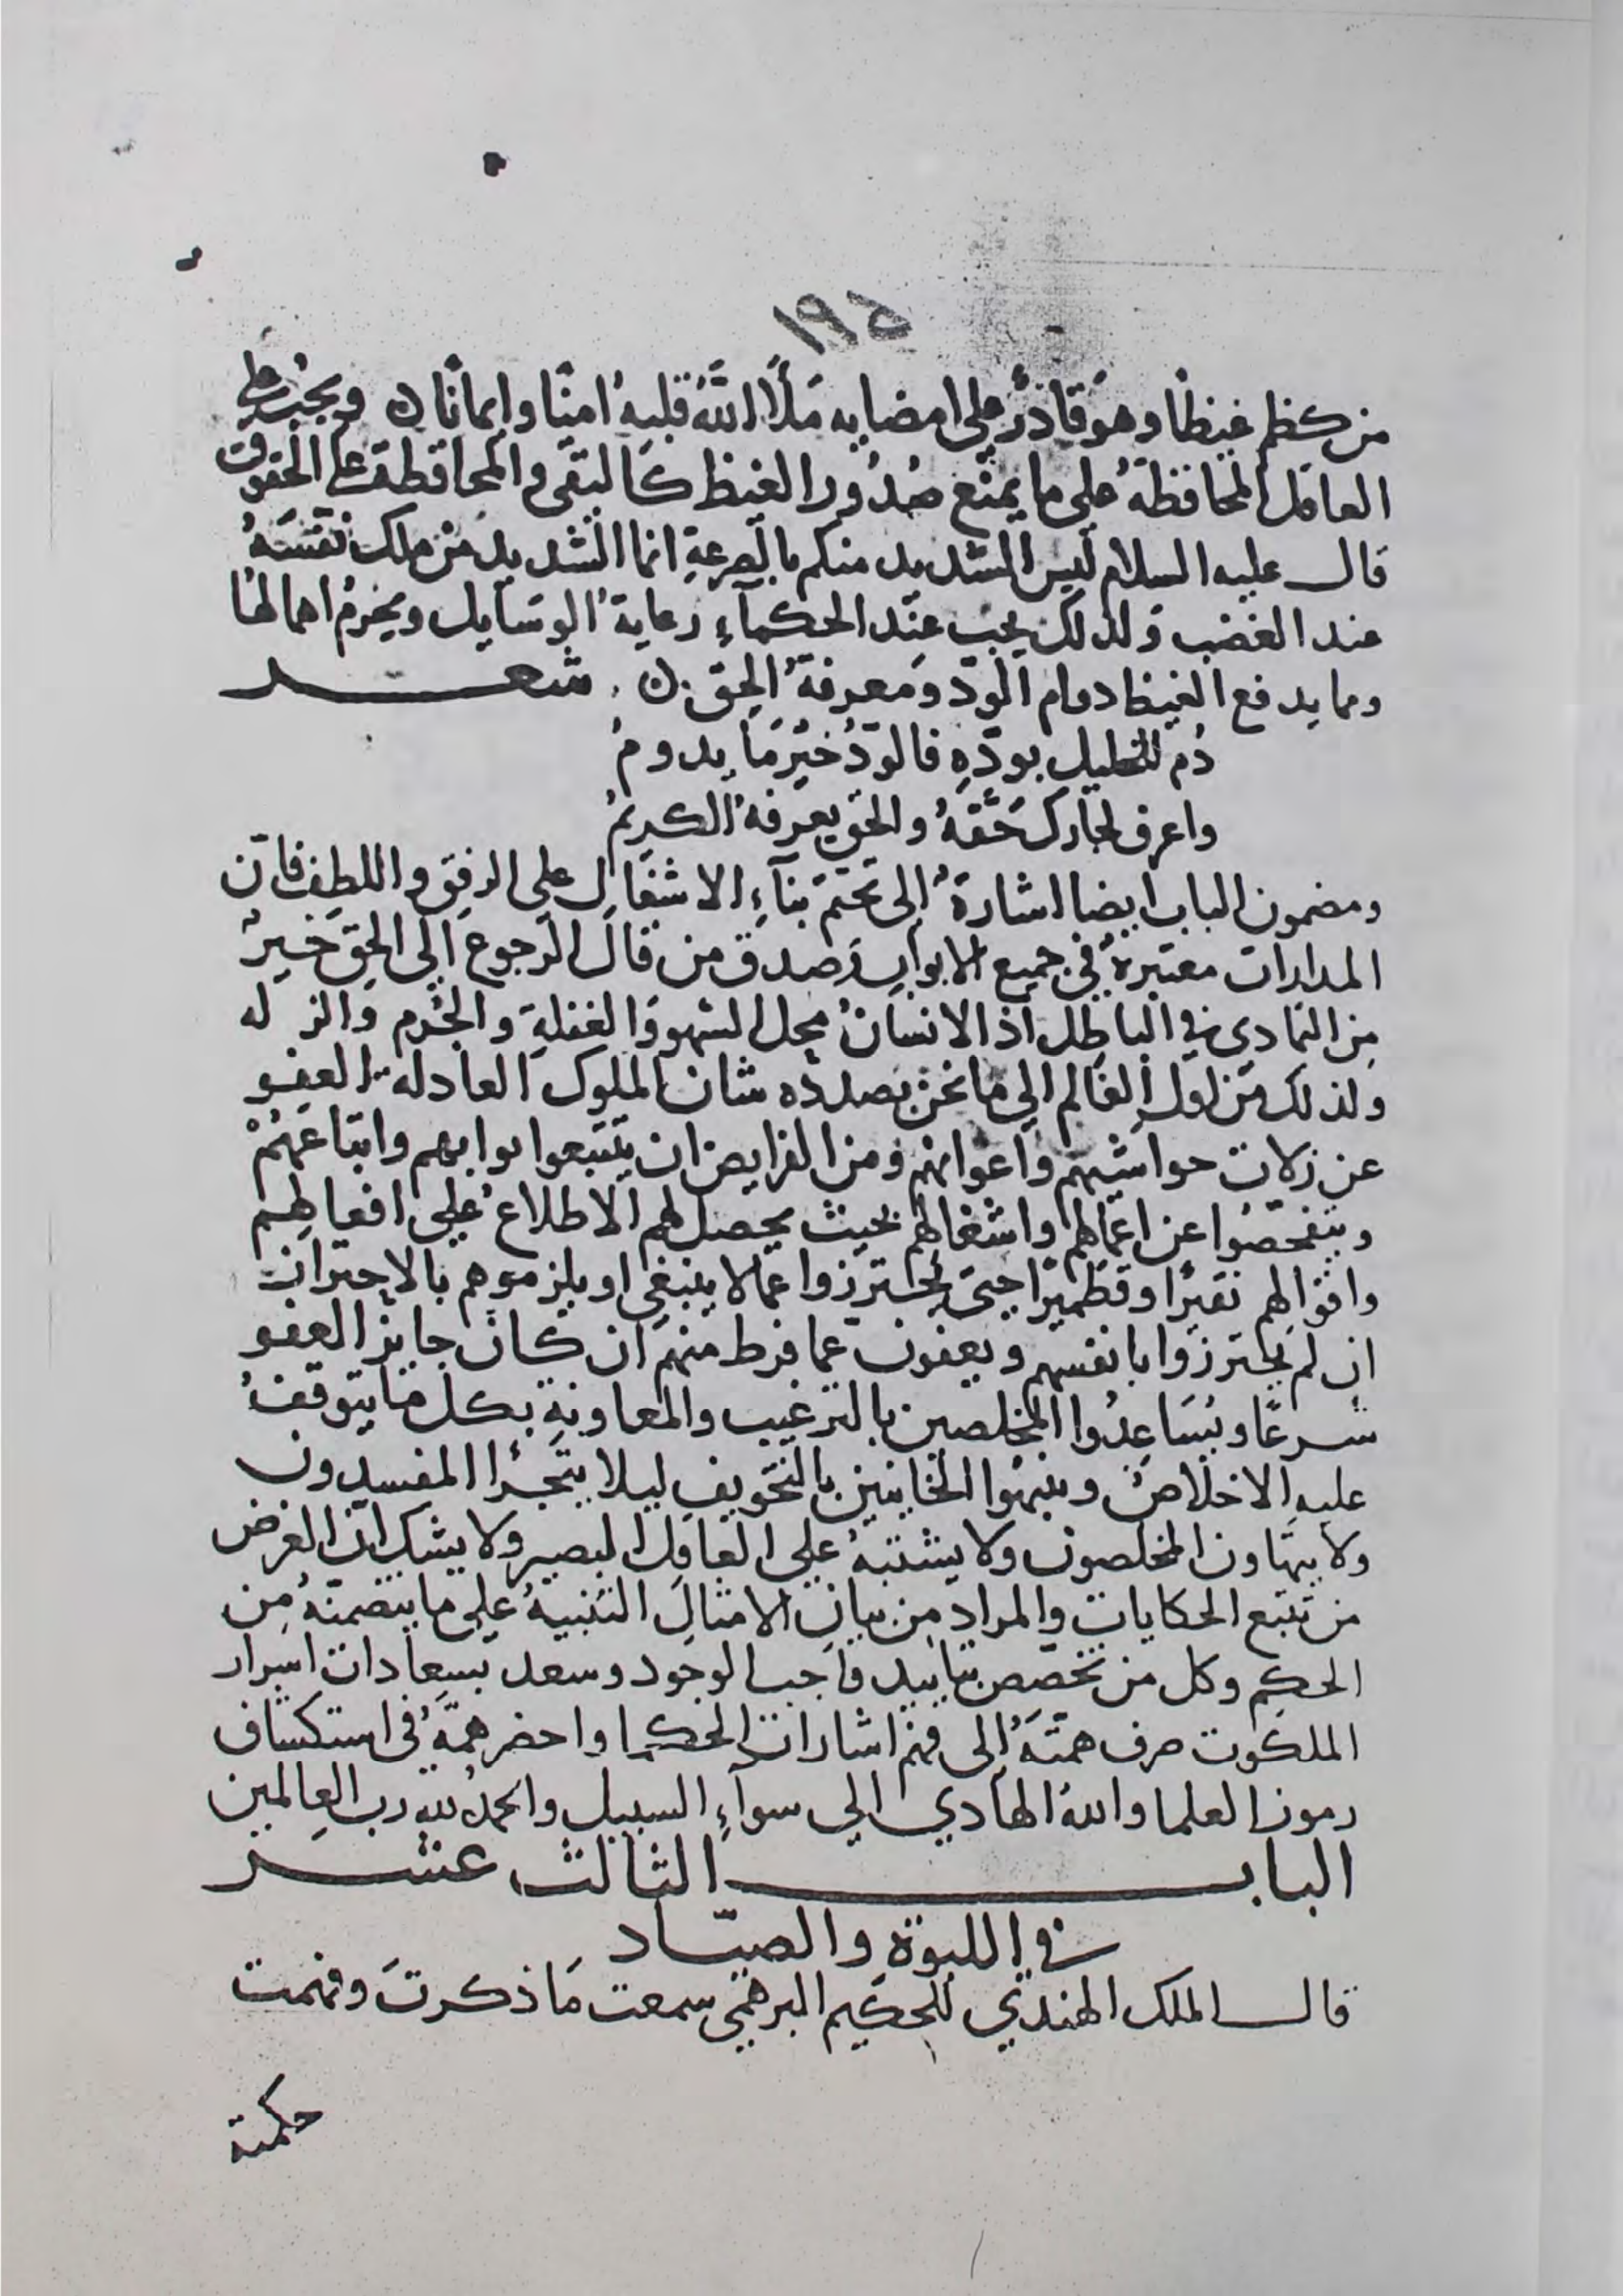 ١٩٥
من كظم غيظا وهو قادر على امضايه ملأ الله قلبه امنا وايمانا ن ويجب على
العاقل المحافظة على ما يمنع صدور الغيظ كالتقى والمحافظة على الحقوق
قال عليه السلام ليس الشديد منكم بالصرعة انما الشديد من ملك نفسه
عند الغضب ولذلك يجب عند الحكماء رعاية الوسايل ويحرم اهمالها
ومما يدفع الغيظ ادمام الود ومعرفة الحق ن شعر
دم للخليل بوده فالود خير ما يدوم
واعرف لجارك حقه والحق يعرفه الكريم
ومضمون الباب ايضا اشارة الى تحتم بناء الاشغال على الرفق واللطف فان
المدارات معتبرة في جميع الابواب وصدق من قال الرجوع الى الحق خير
من التمادى في الباطل اذ الانسان محل السهو والغفلة والجرم والزله
ولذلك من اول العالم الى ما نحن بصدده شان الملوك العادلة العفو
عن زلات حواشيهم واعوانهم ومن الفرايض ان يتتبعوا نوابهم واتباعهم
ويتفحصوا عن اعمالهم واشغالهم بحيث يحصل لهم الاطلاع على افعالهم
واقوالهم نقيرا وقطميرا حتى يحترزوا عما لا ينبغي او يلزموهم بالاحتراز
ان لم يحترزوا بانفسهم ويعفون عما فرط منهم ان كان جايز العفو
شرعا ويساعدوا المخلصين بالترغيب والمعاونة بكل ما يتوقف
عليه الاخلاص وينبهوا الخاينين بالتخويف ليلا يتجرا المفسدون
ولا يتهاون المخلصون ولا يشتبه على العاقل البصير ولا يشك ان الغرض
من تتبع الحكايات والمراد من بيان الامثال التنبيه على ما يتضمنه من
الحكم وكل من تخصص بتاييد واجب الوجود وسعد بسعادات اسرار
الملكوت صرف همته الى فهم اشارات الحكما واحضر همه في استكشاف
رموز العلما والله الهادي الى سوآء السبيل والحمد لله رب العالمين
الباب الثالث عشر
في اللبوة والصياد
قال الملك الهندي للحكيم البرهمي سمعت ما ذكرت وفهمت
حكمة